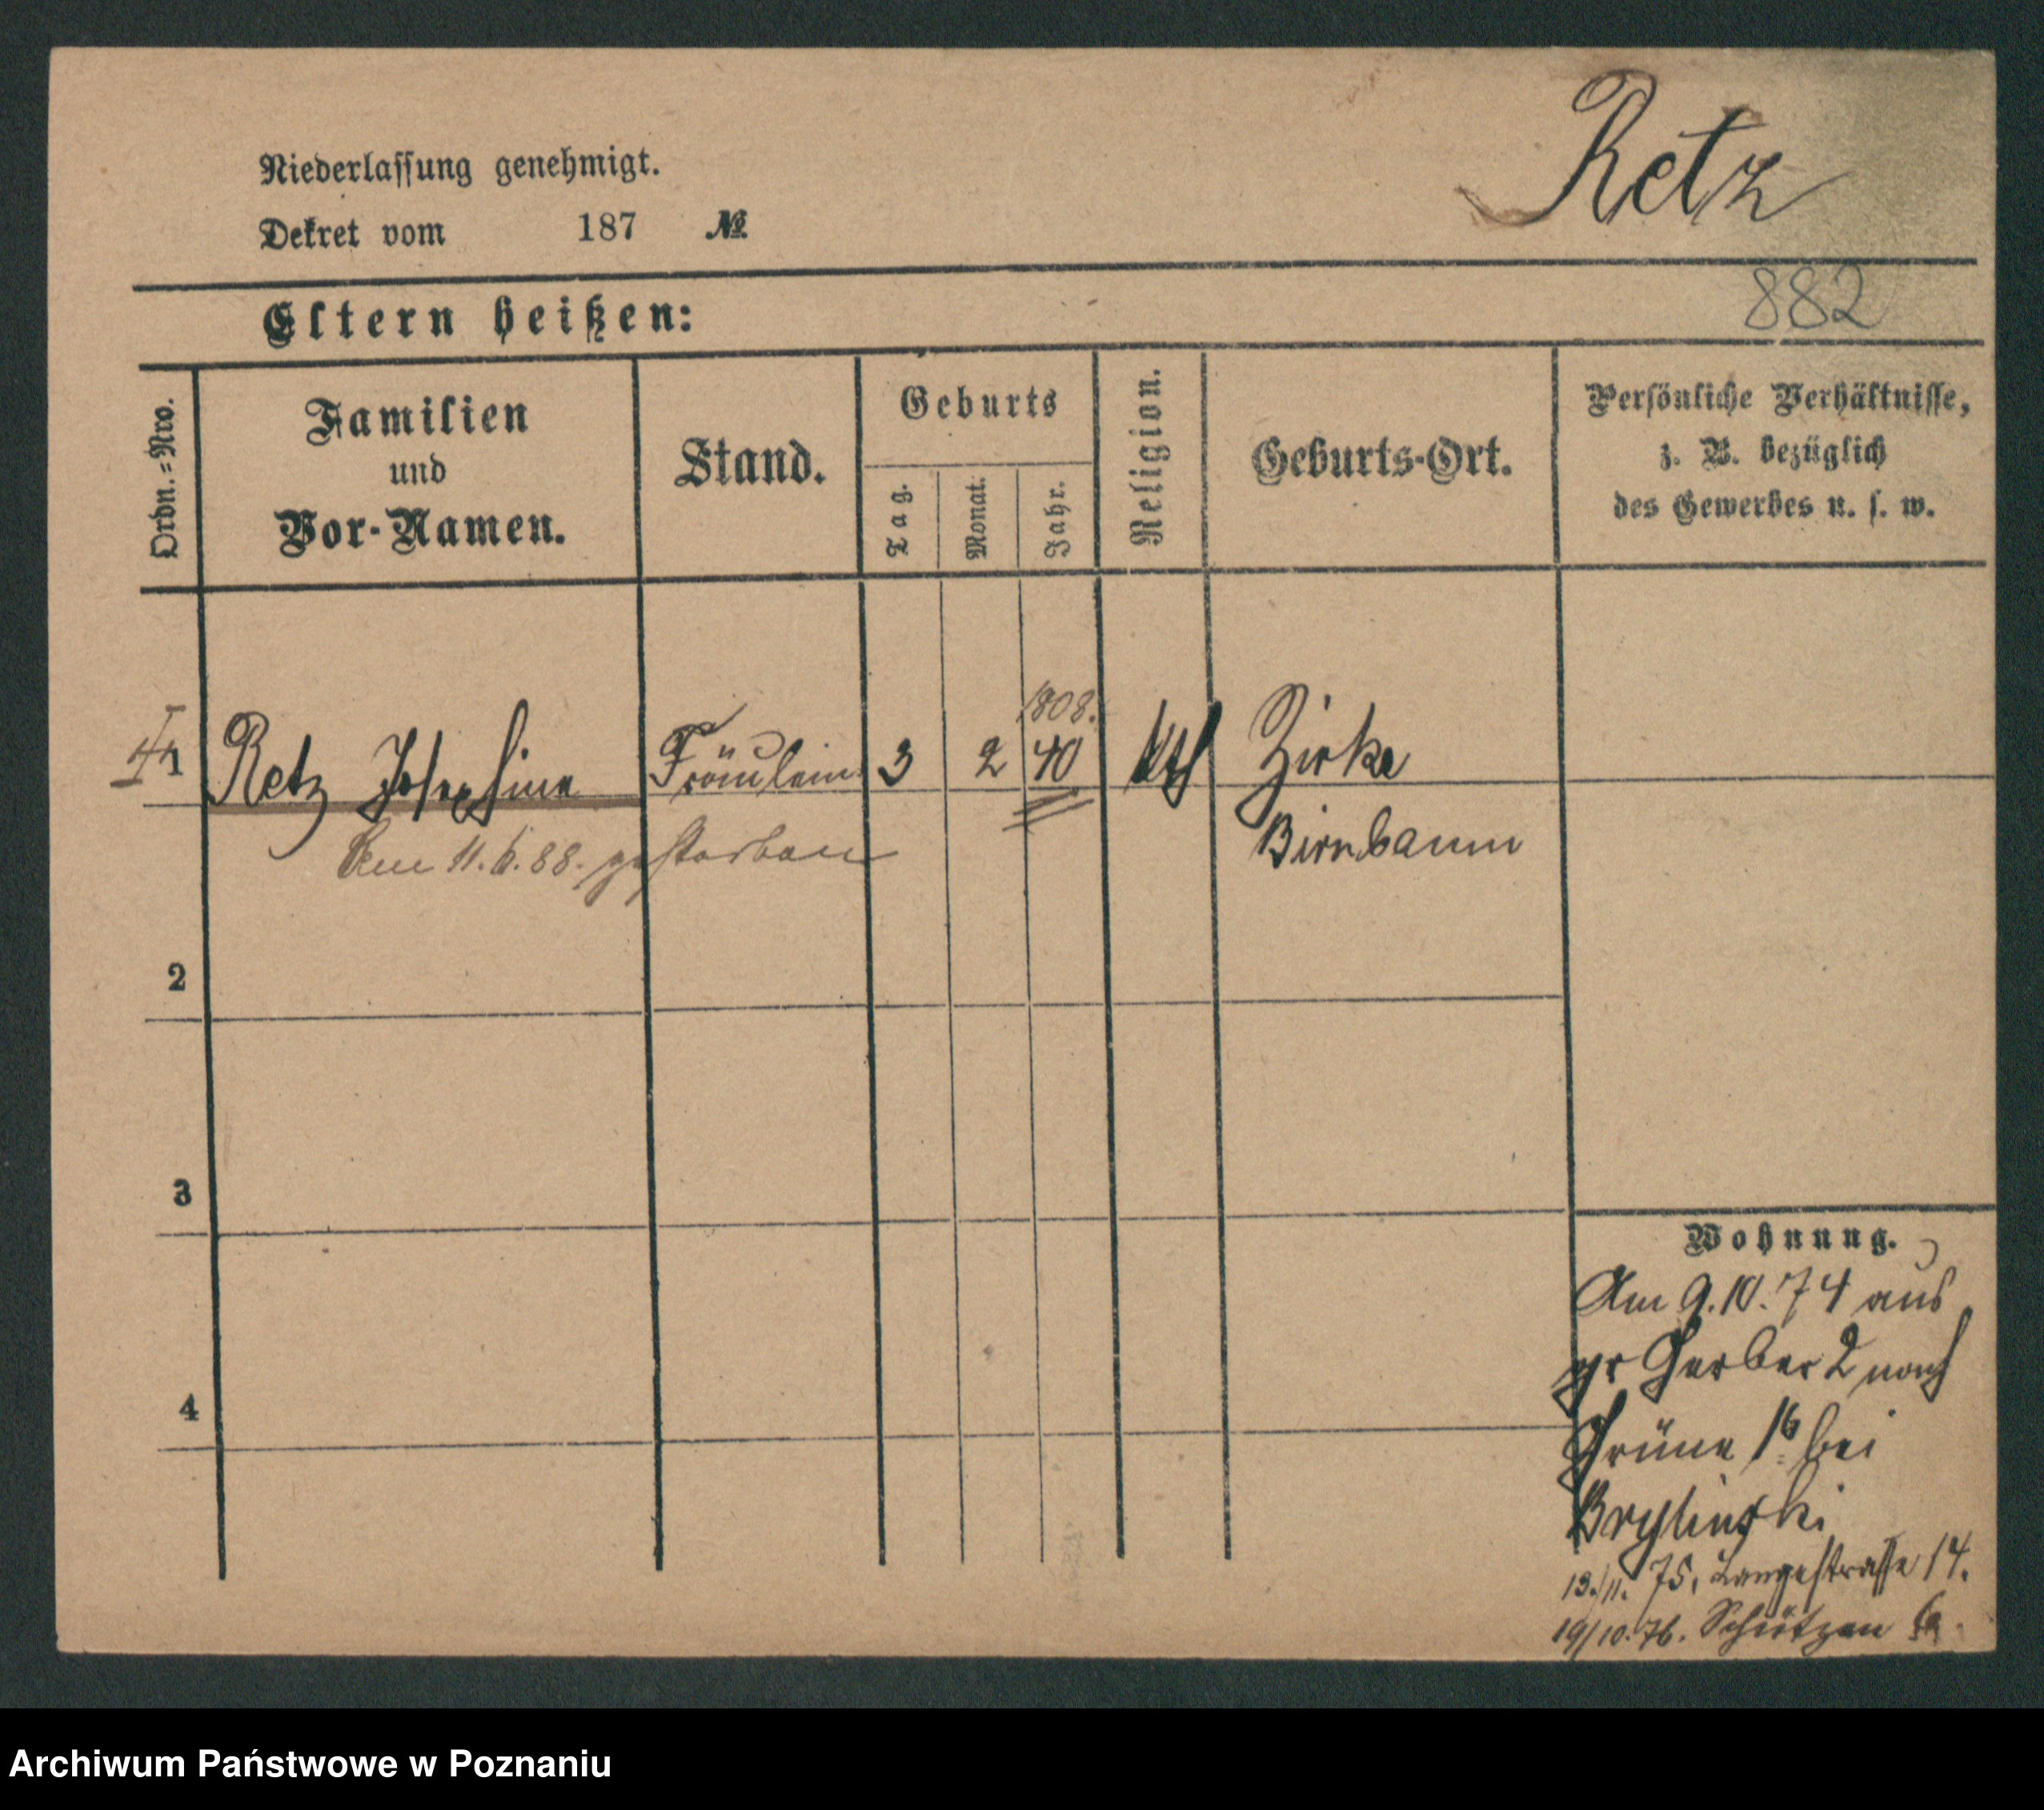 Retz
Niederlassung genehmigt.
Dekret vom 187 №
882
Eltern heißen:
Ordn.=Nro.
Familien
und
Vor-Namen.
Stand.
Geburts
Tag.
Monat.
Jahr.
Religion.
Geburts-Ort.
Persönliche Verhältnisse,
z. B. bezüglich
des Gewerbes u. s. w.
1808.
1 Retz Josephine Fräulein 3 2 40 kth Zirke
Birnbaum
Am 11.6.88. gestorben
2
3
4
Wohnung.
Am 9.10.74 aus
gr Gerber 2 nach
Grüne 1b bei
Brylinski
13./11. 75, Langestrasse 14.
19/10.76. Schützen
Archiwum Państwowe w Poznaniu